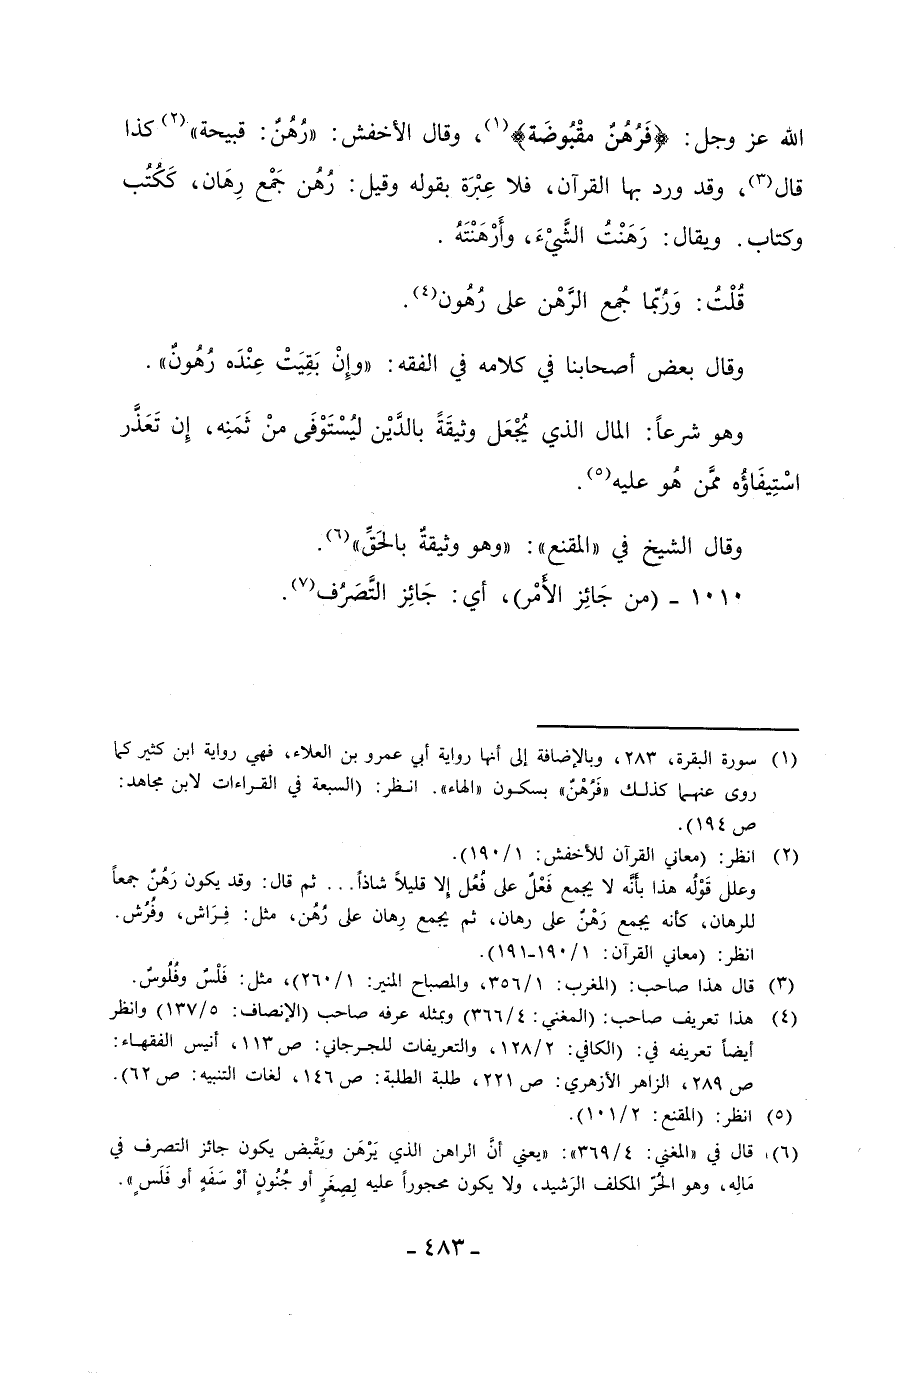 الله عز وجل: ﴿فَرُهُنٌ مقْبُوضَة﴾(١)، وقال الأخفش: «رُهُنٌ: قبيحة»(٢) كذا
قال(٣)، وقد ورد بها القرآن، فلا عِبْرَة بقوله وقيل: رُهُن جَمْع رِهَان، كَكُتُب
وكتاب. ويقال: رَهَنْتُ الشَّيْءَ، وأَرْهَنْتَهُ.
قُلْتُ: وَرُبّما جُمع الرَّهْن على رُهُون(٤).
وقال بعض أصحابنا في كلامه في الفقه: «وإنْ بَقِيَتْ عِنْدَه رُهُونٌ».
وهو شرعاً: المال الذي يُجْعَل وثيقَةً بالدَّيْن ليُسْتَوْفَى منْ ثَمَنِه، إن تَعَذَّر
اسْتِيفَاؤُه ممَّن هُو عليه(٥).
وقال الشيخ في «المقنع»: «وهو وثيقةٌ بالحَقِّ»(٦).
١٠١٠ - (من جَائِز الأَمْر)، أي: جَائِز التَّصَرُف(٧).
(١) سورة البقرة، ٢٨٣، وبالإضافة إلى أنها رواية أبي عمرو بن العلاء، فهي رواية ابن كثير كما
روى عنهما كذلك «فَرُهْنٌ» بسكون «الهاء». انظر: (السبعة في القراءات لابن مجاهد:
ص ١٩٤).
(٢) انظر: (معاني القرآن للأخفش: ١/ ١٩٠).
وعلل قَوْلُه هذا بأنَّه لا يجمع فَعْلٌ على فُعُل إلا قليلاً شاذاً... ثم قال: وقد يكون رَهُنٌ جمعاً
للرهان، كأنه يجمع رَهْنٌ على رهان، ثم يجمع رِهان على رُهُن، مثل: فِرَاش، وفُرُش.
انظر: (معاني القرآن: ١/ ١٩٠-١٩١).
(٣) قال هذا صاحب: (المغرب: ١/ ٣٥٦، والمصباح المنير: ١/ ٢٦٠)، مثل: فَلْسٌ وفُلُوسٌ.
(٤) هذا تعريف صاحب: (المغني: ٤/ ٣٦٦) وبمثله عرفه صاحب (الإنصاف: ٥/ ١٣٧) وانظر
أيضاً تعريفه في: (الكافي: ٢/ ١٢٨، والتعريفات للجرجاني: ص ١١٣، أنيس الفقهاء:
ص ٢٨٩، الزاهر الأزهري: ص ٢٢١، طلبة الطلبة: ص ١٤٦، لغات التنبيه: ص ٦٢).
(٥) انظر: (المقنع: ٢/ ١٠١).
(٦) قال في «المغني: ٤/ ٣٦٩»: «يعني أنَّ الراهن الذي يَرْهَن ويَقْبض يكون جائز التصرف في
مَالِه، وهو الحُرّ المكلف الرَشيد، ولا يكون محجوراً عليه لِصِغَرٍ أو جُنُونٍ أوْ سَفَهٍ أو فَلَسٍ».
- ٤٨٣ -